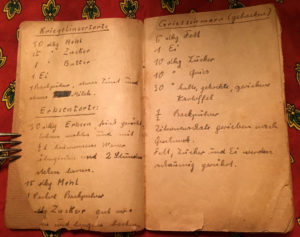 Kriegslinzertorte
30 dkg Mehl
15 " Zucker
1 " Butter
1 Ei
1 Backpulver, etwas Zimt und
etwas Milch.
Erbsentorte:
30 dkg Erbsen frisch
waschen und mit
½ l Wasser
und 2 Stunden
stehen lassen.
15 dkg Mehl
1 Packet Backpulver
dkg Zucker gut
und langsam backen
Griesschmarn (gebacken)
5 dkg Fett
1 Ei
10 dkg Zucker
10 " Gries
30 " kalte, gekochte, geriebene
Kartoffel
½ Backpulver
Zitronenschale gerieben nach
Geschmack.
Fett, Zucker und Ei werden
schaumig gerührt.